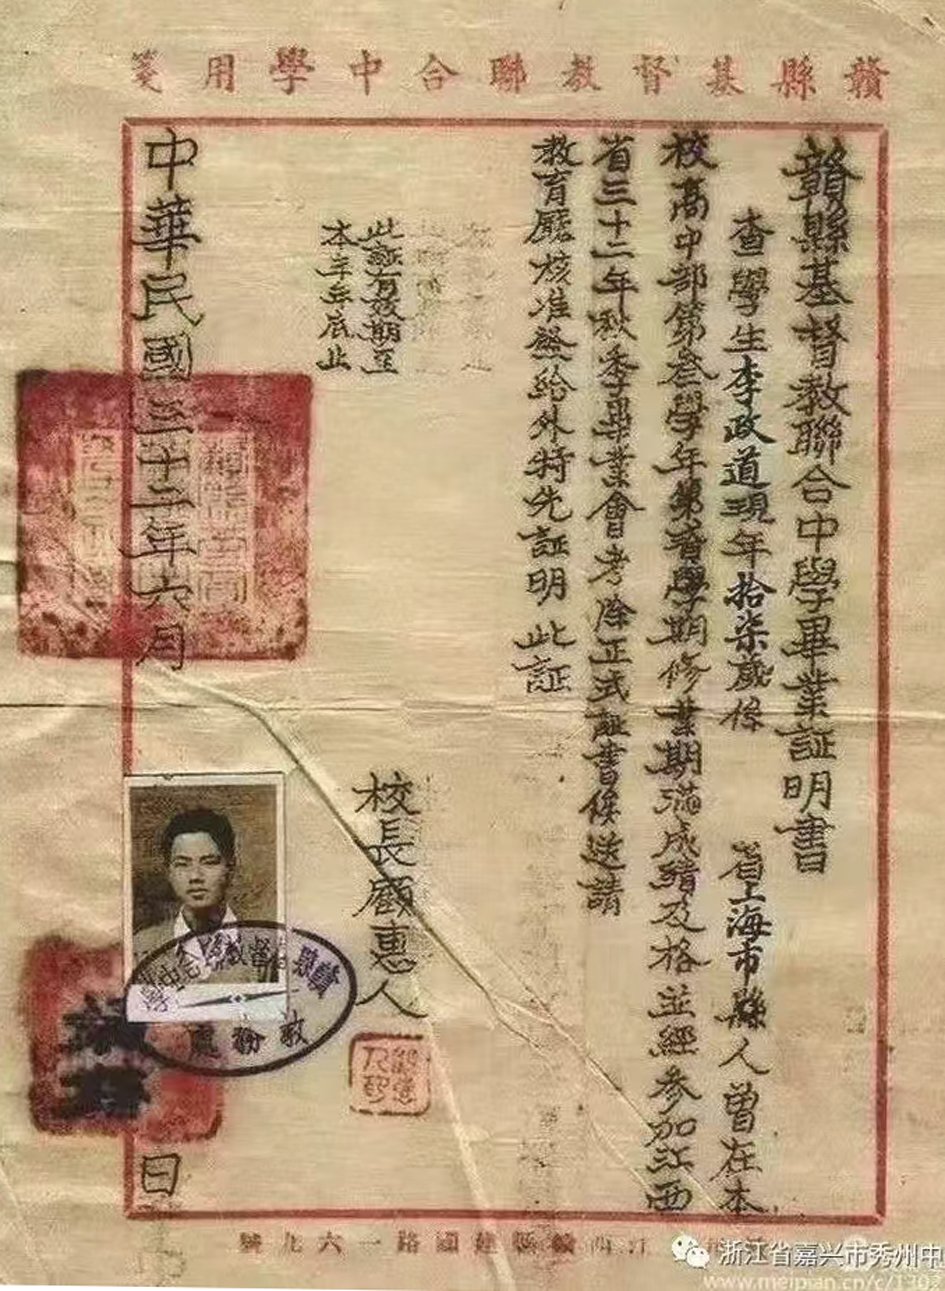 贛縣基督教聯合中學用箋
贛縣基督教聯合中學畢業証明書
查學生李政道現年拾柒歲係 省上海市縣人曾在本
校高中部第叁學年第貳學期修業期滿成績及格並經參加江西
省三十二年秋季畢業會考除正式証書候送請
教育廳核准發給外特先証明 此証
此証有效期至
本年年底止
校長顧惠人
中華民國三十二年六月 日
贛縣基督教聯合中學
教務處
江西贛縣建國路一六九號
浙江省嘉兴市秀州中
www.meipian.cn/c/1302